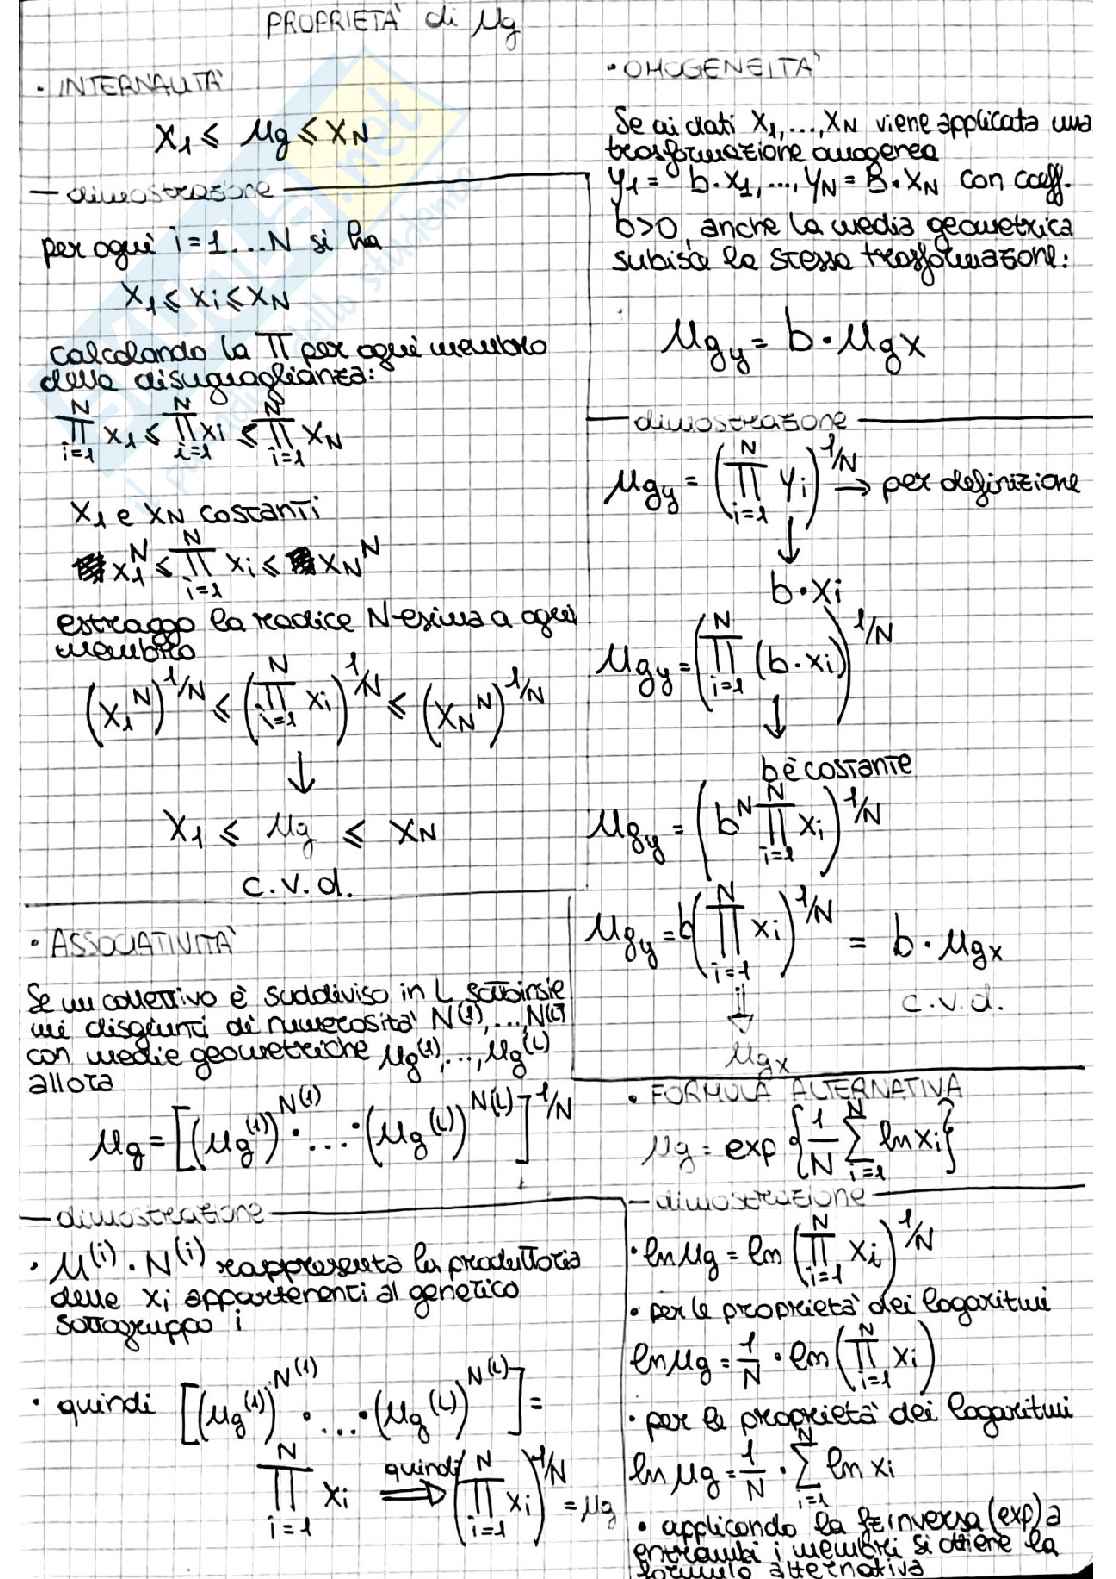 PROPRIETÀ di μg
• INTERNALITÀ
x₁ ≤ μg ≤ xN
dimostrazione
per ogni i = 1...N si ha
x₁ ≤ xi ≤ xN
calcolando la Π per ogni membro
della disuguaglianza:
∏_{i=1}^{N} x₁ ≤ ∏_{i=1}^{N} xi ≤ ∏_{i=1}^{N} xN
x₁ e xN costanti
x₁^N ≤ ∏_{i=1}^{N} xi ≤ xN^N
estraggo la radice N-esima a ogni
membro
(x₁^N)^{1/N} ≤ (∏_{i=1}^{N} xi)^{1/N} ≤ (xN^N)^{1/N}
↓
x₁ ≤ μg ≤ xN
c.v.d.
• ASSOCIATIVITÀ
Se un collettivo è suddiviso in L sottoinsie
mi disgiunti di numerosità N^(1),...,N^(L)
con medie geometriche μg^(1),...,μg^(L)
allora
μg = [(μg^(1))^{N^(1)} · ... · (μg^(L))^{N(L)}]^{1/N}
dimostrazione
• μ^(i) · N^(i) rappresenta la produttoria
delle xi appartenenti al generico
sottogruppo i
• quindi [(μg^(1))^{N^(1)} · ... · (μg^(L))^{N^(L)}] =
∏_{i=1}^{N} xi quindi ⟹ (∏_{i=1}^{N} xi)^{1/N} = μg
• OMOGENEITÀ
Se ai dati x₁,...,xN viene applicata una
trasformazione omogenea
y₁ = b·x₁,..., yN = B·xN con coeff.
b>0, anche la media geometrica
subisce la stessa trasformazione:
μg_y = b·μgx
dimostrazione
μg_y = (∏_{i=1}^{N} yi)^{1/N} → per definizione
↓
b·xi
μg_y = (∏_{i=1}^{N} (b·xi))^{1/N}
↓
b è costante
μg_y = (b^N ∏_{i=1}^{N} xi)^{1/N}
μg_y = b(∏_{i=1}^{N} xi)^{1/N} = b·μgx
c.v.d.
⇓
μgx
• FORMULA ALTERNATIVA
μg = exp {1/N ∑_{i=1}^{N} ln xi}
dimostrazione
• ln μg = ln (∏_{i=1}^{N} xi)^{1/N}
• per le proprietà dei logaritmi
ln μg = 1/N · ln (∏_{i=1}^{N} xi)
• per le proprietà dei logaritmi
ln μg = 1/N · ∑_{i=1}^{N} ln xi
• applicando la fz inversa (exp) a
entrambi i membri si ottiene la
formula alternativa